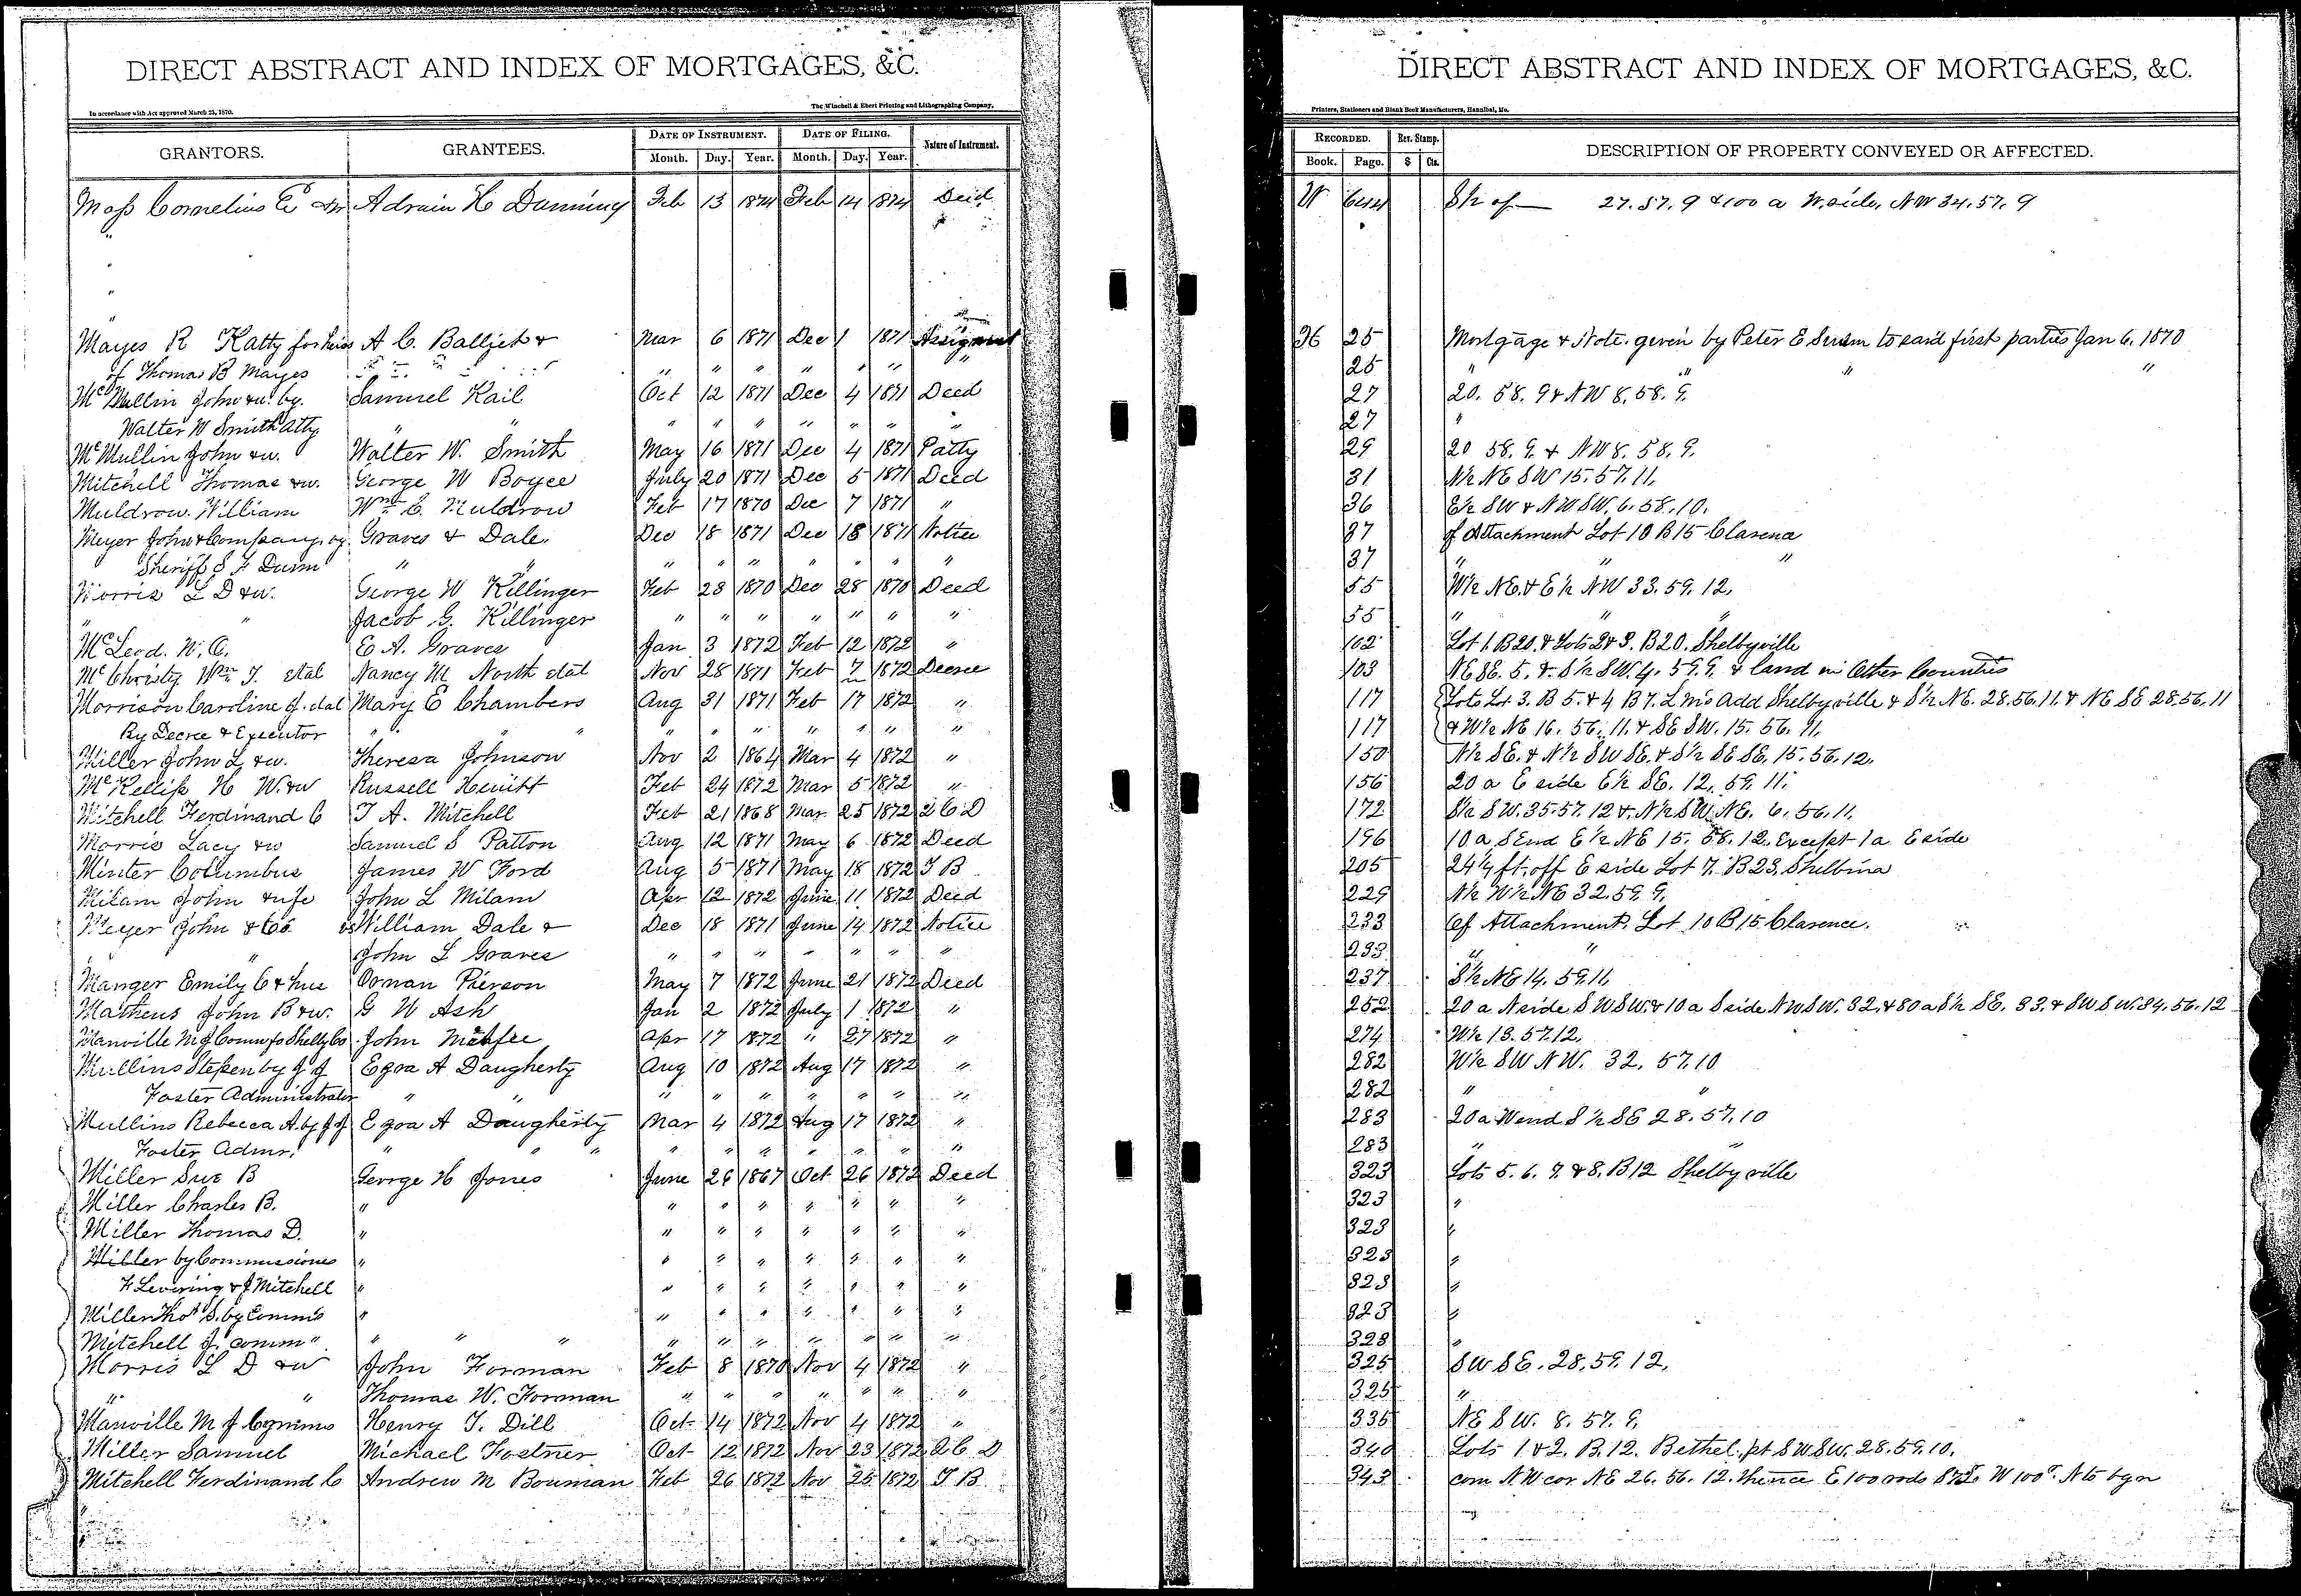 DIRECT ABSTRACT AND INDEX OF MORTGAGES, &C.
In accordance with Act approved March 25, 1870. The Winchell & Ebert Printing and Lithographing Company,
GRANTORS. GRANTEES. DATE OF INSTRUMENT. DATE OF FILING. Nature of Instrument.
Month. Day. Year. Month. Day. Year.
Moss Cornelius E Adrain H Dunning Feb 13 1874 Feb 14 1874 Deed
Mayes R Katty for heirs A C. Balljet & Mar 6 1871 Dec 1 1871 Assignment
of Thomas B Mayes " " " " " " "
McMullin John &w. by. Samuel Kail Oct 12 1871 Dec 4 1871 Deed
Walter W Smith Atty " " " " " " " "
McMullin John &w. Walter W. Smith May 16 1871 Dec 4 1871 Patty
Mitchell Thomas &w. George W Boyce July 20 1871 Dec 5 1871 Deed
Muldrow. William Wm C. Muldrow Feb 17 1870 Dec 7 1871 "
Meyer John & Company, by Graves & Dale. Dec 18 1871 Dec 18 1871 Notice
Sheriff S F Dunn " " " " " " " "
Morris L D &w. George W Killinger Feb 28 1870 Dec 28 1870 Deed
" " Jacob G. Killinger " " " " " " "
McLeod. W. C. E A. Graves Jan 3 1872 Feb 12 1872 "
McChristy Wm T. etal Nancy M North etal Nov 28 1871 Feb 7 1872 Decree
Morrison Caroline J. etal Mary E Chambers Aug 31 1871 Feb 17 1872 "
By Decree & Executor " " " " " " " "
Miller John L &w. Theresa Johnson Nov 2 1864 Mar 4 1872 "
McKelliss H W. &w Russell Hewitt Feb 24 1872 Mar 5 1872 "
Mitchell Ferdinand C T A. Mitchell Feb 21 1868 Mar 25 1872 2 C D
Morris Lacy &w Samuel S Patton Aug 12 1871 May 6 1872 Deed
Minter Columbus James W Ford Aug 5 1871 May 18 1872 T B
Milam John &wife John L Milam Apr 12 1872 June 11 1872 Deed
Meyer John & Co vs William Dale & Dec 18 1871 June 14 1872 Notice
" John L Graves " " " " " " "
Manger Emily C & hus Ooman Pierson May 7 1872 June 21 1872 Deed
Matheus John B &w. G W Ash Jan 2 1872 July 1 1872 "
Manville M J Comm fo Shelby Co John McAfee Apr 17 1872 " 27 1872 "
Mullins Stephen by J J Egoa A Daugherty Aug 10 1872 Aug 17 1872 "
Foster Administrator " " " " " " " "
Mullins Rebecca A. by J J Egoa A Daugherty Mar 4 1872 Aug 17 1872 "
Foster Admr. " " " " " " " " "
Miller Sue B George H Jones June 26 1867 Oct 26 1872 Deed
Miller Charles B. " " " " " " " "
Miller Thomas D. " " " " " " " "
Miller by Commissiones " " " " " " " "
F Levering & J Mitchell " " " " " " " "
Miller Thos S. by Comms " " " " " " " "
Mitchell J. comm " " " " " " " " " "
Morris L D &w John Forman Feb 8 1870 Nov 4 1872 "
" " Thomas W. Forman " " " " " " "
Manville M J Comms Henry T. Dill Oct 14 1872 Nov 4 1872 "
Miller Samuel Michael Fostner Oct 12 1872 Nov 23 1872 Q C D
Mitchell Ferdinand C Andrew M Bouman Feb 26 1872 Nov 25 1872 T B
DIRECT ABSTRACT AND INDEX OF MORTGAGES, &C.
Printers, Stationers and Blank Book Manufacturers, Hannibal, Mo.
RECORDED. Rev. Stamp. DESCRIPTION OF PROPERTY CONVEYED OR AFFECTED.
Book. Page. $ Cts.
W 644 S½ of — 27. 57. 9 & 100 a W. side, NW 34. 57. 9
36 25 Mortgage & Note. given by Peter E to said first parties Jan 6, 1870
25 " " "
27 20. 58. 9 & NW 8. 58. 9.
27 "
29 20 58. 9. & NW 8. 58. 9.
31 N½ NE SW 15. 57. 11.
36 E½ SW & NW SW. 6. 58. 10.
37 of Attachment Lot 10 B 15 Clarena
37 " "
55 W½ NE. & E½ NW 33. 59. 12.
55 " " "
102 Lot 1. B20. & Lots 2 & 3. B20. Shelbyville
103 NE 86. 5. & S½ SW. 4. 59. 9. & land in Other Counties
117 Lots Lot 3. B 5. & 4 B 7. L Mcs Add Shelbyville & S½ NE. 28. 56. 11. & NE SE 28. 56. 11
117 & W½ NE 16. 56. 11. & SE SW. 15. 56. 11.
150 N½ SE. & N½ SW SE. & S½ SE SE. 15. 56. 12.
156 20 a E side E½ SE. 12. 59. 11.
172 S½ SW. 35. 57. 12 & N½ SW NE. 6. 56. 11.
196 10 a S End E½ NE 15. 58. 12. Except 1 a E side
205 24¼ ft. off E side Lot 7. B 23. Shelbina
229 N½ W½ NE 32. 59. 9.
233 of Attachment, Lot 10 B 15 Clarence.
233 " "
237 S½ NE 14. 59. 11
252 20 a N side SW SW. & 10 a S side NW SW. 32. & 80 a S½ SE. 33. & SW SW. 34. 56. 12
274 W½ 13. 57. 12.
282 W½ SW NW. 32. 57. 10
282 " "
283 20 a W end S½ SE 28. 57. 10
283 " "
323 Lots 5. 6. 7. & 8. B12 Shelbyville
323 "
323 "
323 "
323 "
323 "
323 "
325 SW SE. 28. 59. 12.
325 "
335 NE SW. 8. 57. 9.
340 Lots 1 & 2. B. 12. Bethel. pt SW SW. 28. 59. 10.
343 com NW cor NE 26. 56. 12. thence E 100 rods W 100 r. N to bgn